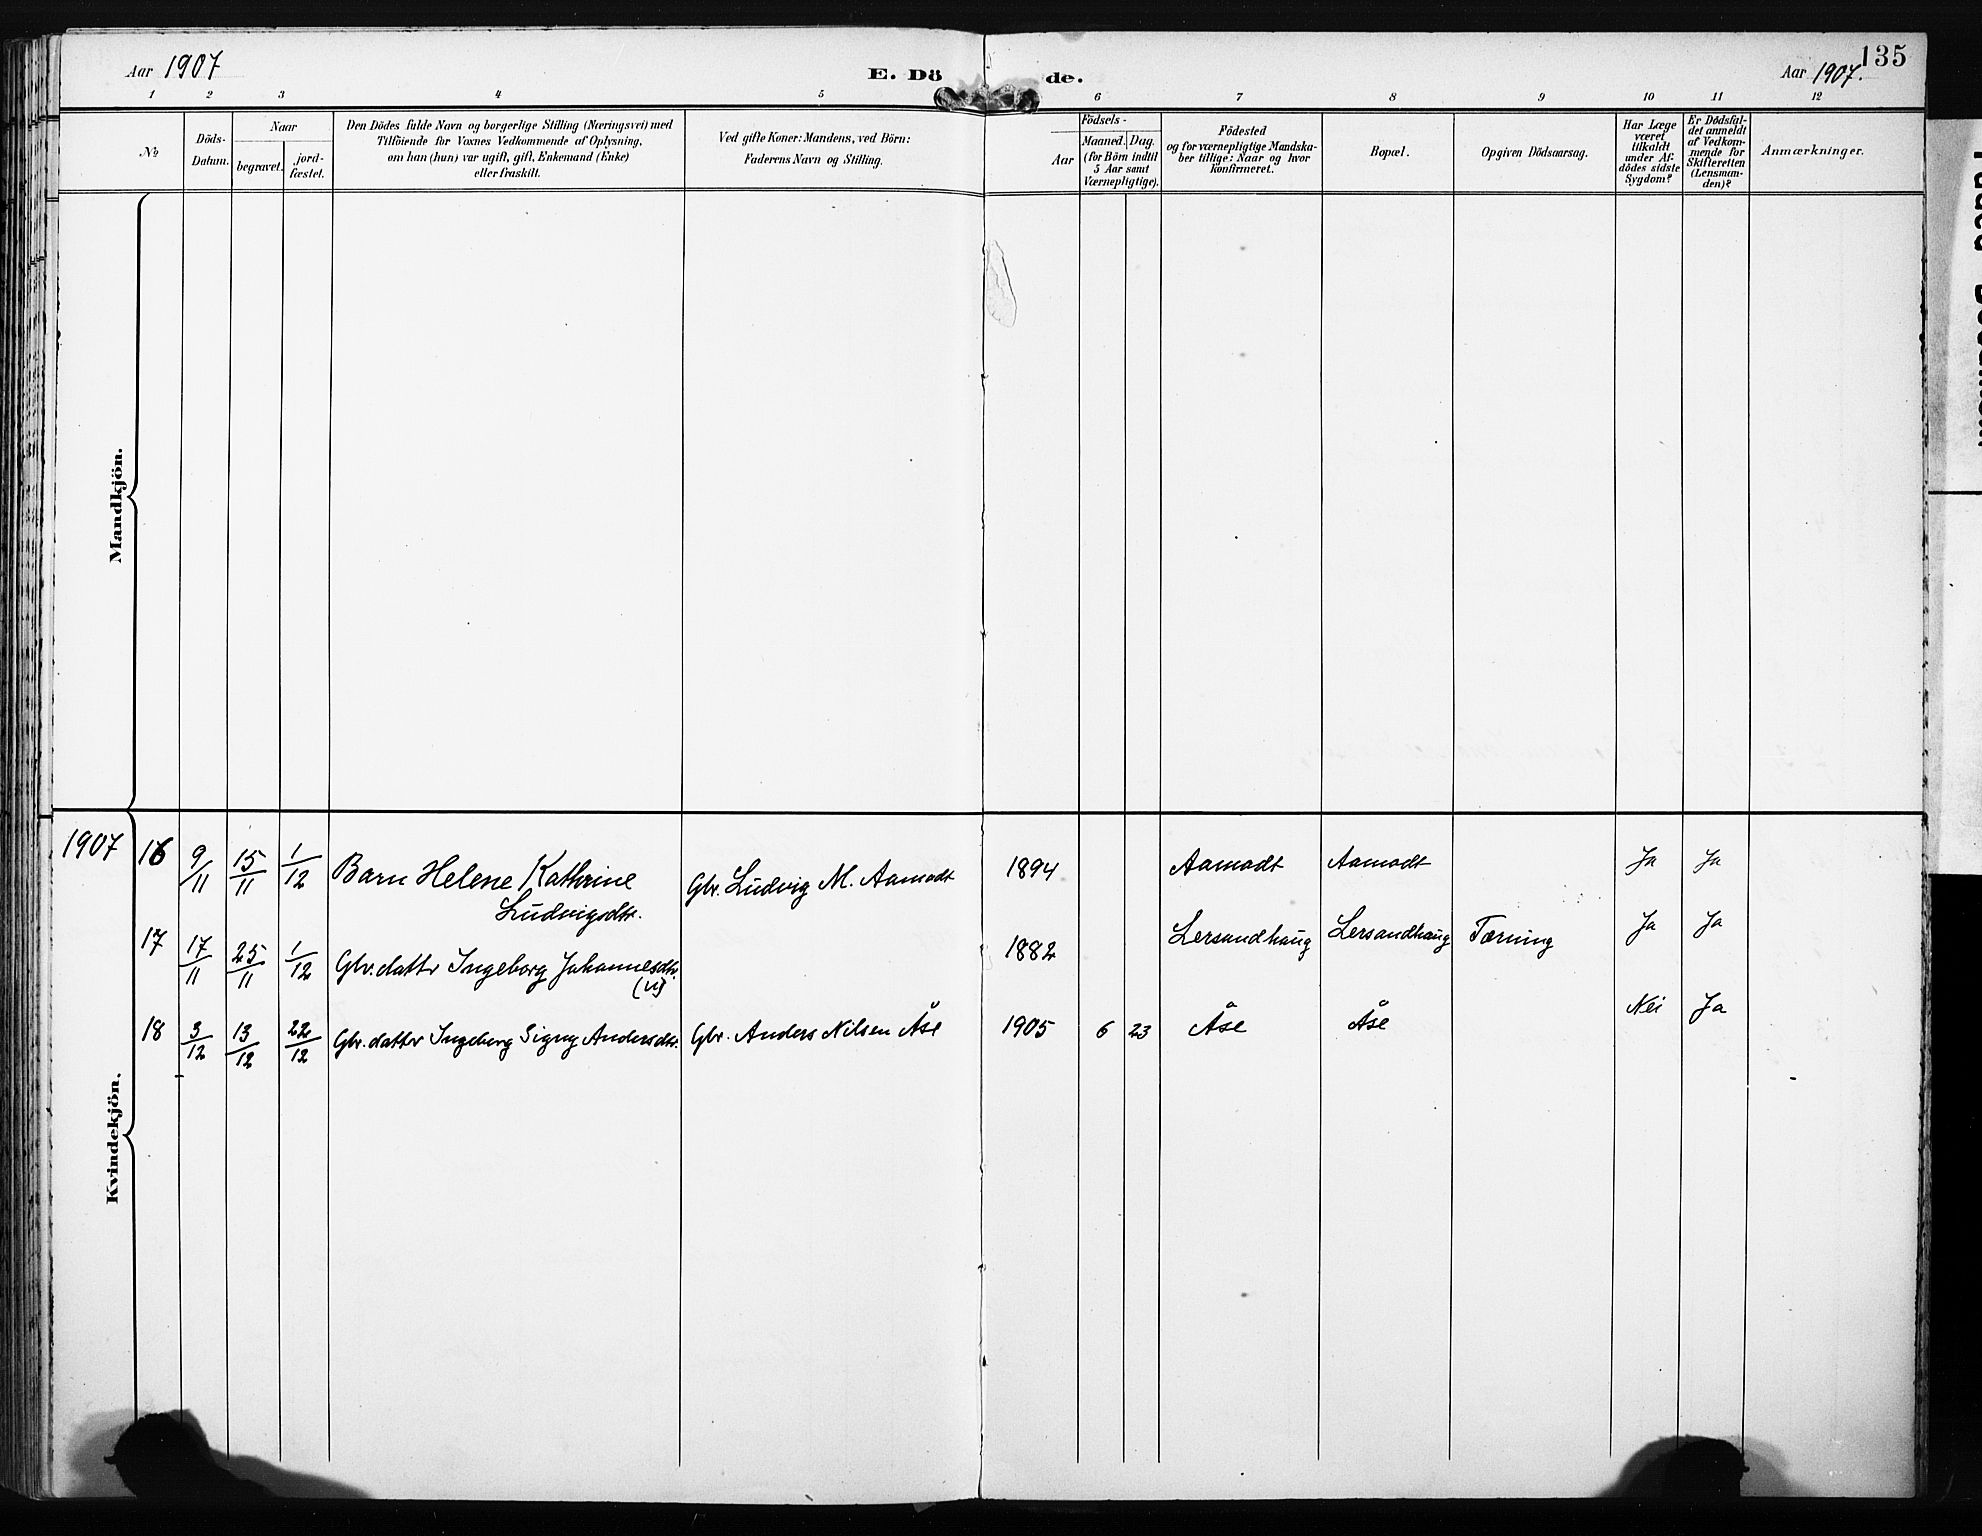 135
Aar 1907
E. Dö de.
Aar 1907.
1 2 3 4 5 6 7 8 9 10 11 12
No
Döds-
Datum.
Naar
begravet.
jord-
fæstet.
Den Dödes fulde Navn og borgerlige Stilling (Næringsvei) med
Tilföiende for Voxnes Vedkommende af Oplysning,
om han (hun) var ugift, gift, Enkemand (Enke)
eller fraskilt.
Ved gifte Koner: Mandens, ved Börn:
Faderens Navn og Stilling.
Födsels-
Aar
Maaned. Dag.
(for Börn indtil
5 Aar samt
Værnepligtige).
Födested
og for værnepligtige Mandska-
ber tillige: Naar og hvor
konfirmeret.
Bopæl.
Opgiven Dödsaarsag.
Har Læge
været
tilkaldt
under Af-
dödes sidste
Sygdom?
Er Dödsfal-
det anmeldt
af Vedkom-
mende for
Skifteretten
(Lensman-
den)?
Anmærkninger.
Mandkjön.
Kvindekjön.
1907 16 9/11 15/11 1/12 Barn Helene Kathrine Gbr. Ludvig M. Aamodt 1894 Aamodt Aamodt Ja Ja
Ludvigsdtr.
17 17/11 25/11 1/12 Gbr. datter Ingeborg Johannesdtr. 1882 Lersandhaug Lersandhaug Tæring Ja Ja
18 3/12 13/12 22/12 Gbr. datter Ingeborg Signy Andersdtr. Gbr. Anders Nilsen Åse 1905 6 23 Åse Åse Nei Ja